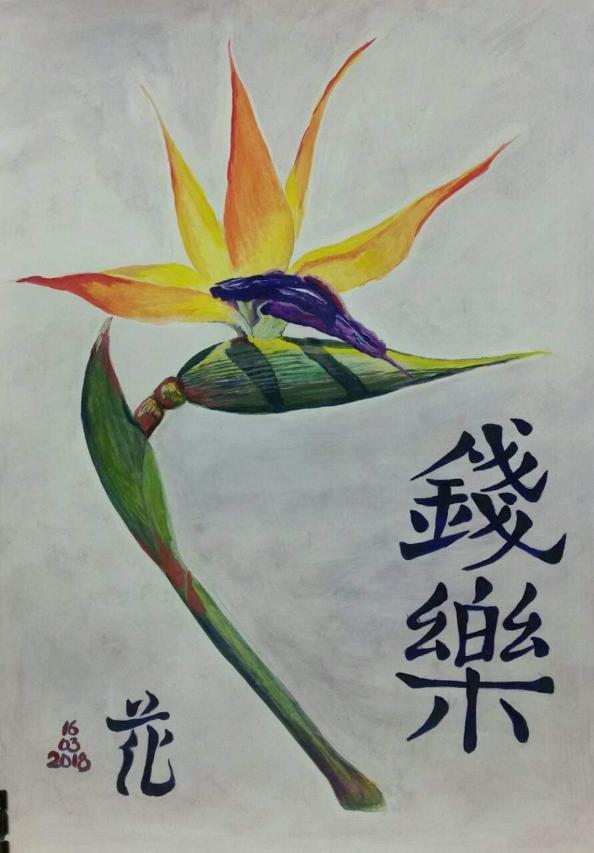 錢
樂
花
16
03
2018